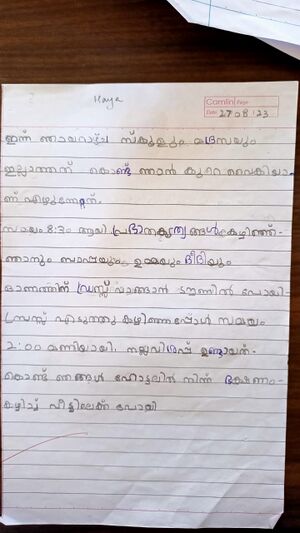 Raya
Camlin Page
Date 27 08 23
ഇന്ന് ഞായറാഴ്ച സ്കൂളും മദ്രസയും
ഇല്ലാത്തത് കൊണ്ട് ഞാൻ കുറെ വൈകിയാ-
ണ് എഴുന്നേറ്റത്.
സമയം 8:30 ആയി പ്രഭാതകൃത്യങ്ങൾകഴിഞ്ഞ്
ഞാനും ബാപ്പയും, ഉമ്മയും ദീദിയും
ഓണത്തിന് ഡ്രസ്സ് വാങ്ങാൻ ടൗണിൽ പോയി-
ഡ്രസ്സ് എടുത്തു കഴിഞ്ഞപ്പോൾ സമയം
2:00 മണിയായി. നല്ലവിശപ്പ് ഉണ്ടായത്-
കൊണ്ട് ഞങ്ങൾ ഹോട്ടലിൽ നിന്ന് ഭക്ഷണം-
കഴിച്ച് വീട്ടിലേക്ക് പോയി